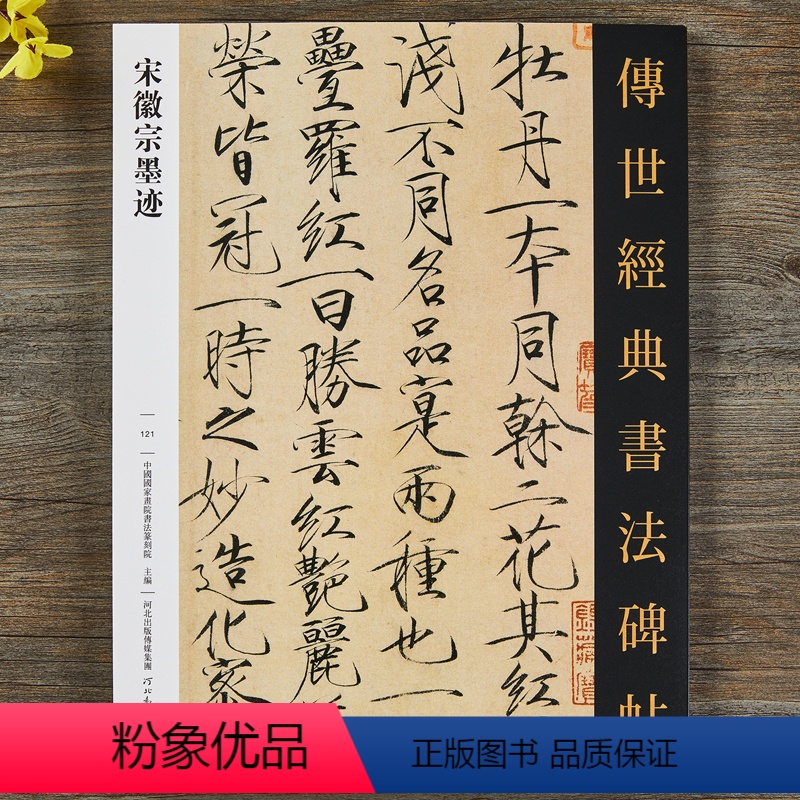 傳世經典書法碑帖
牡丹一本同榦二花其紅
淺不同名品寔兩種也一
疊羅紅一曰勝雲紅艷麗
榮皆冠一時之妙造化密
宋徽宗墨迹
121
中國國家畫院書法篆刻院 主編
河北出版傳媒集團
河北
粉象优品
正版图书 品质保证